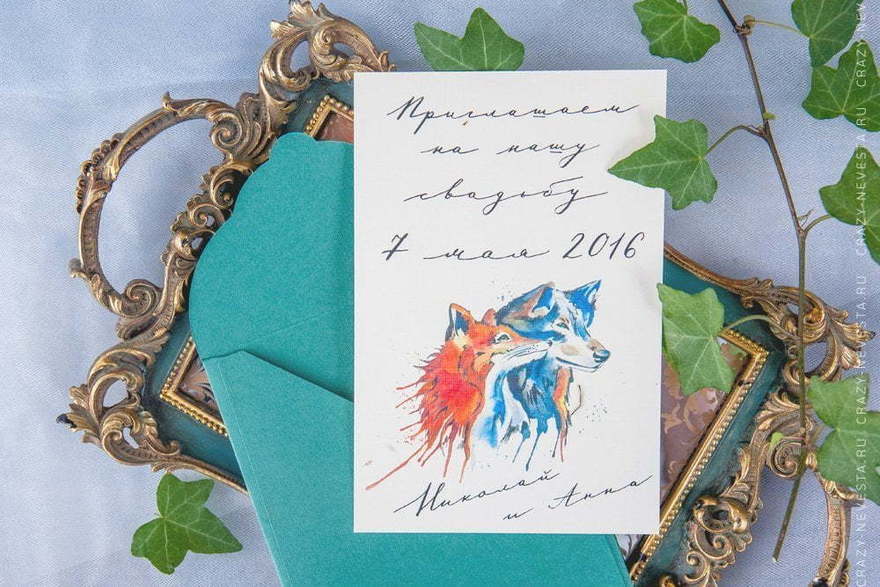 Приглашаем
на нашу
свадьбу
7 мая 2016
Николай
и Анна
CRAZY-NEVESTA.RU CRAZY-NEVESTA.RU CRAZY-NEVESTA.RU CRAZY-NEV